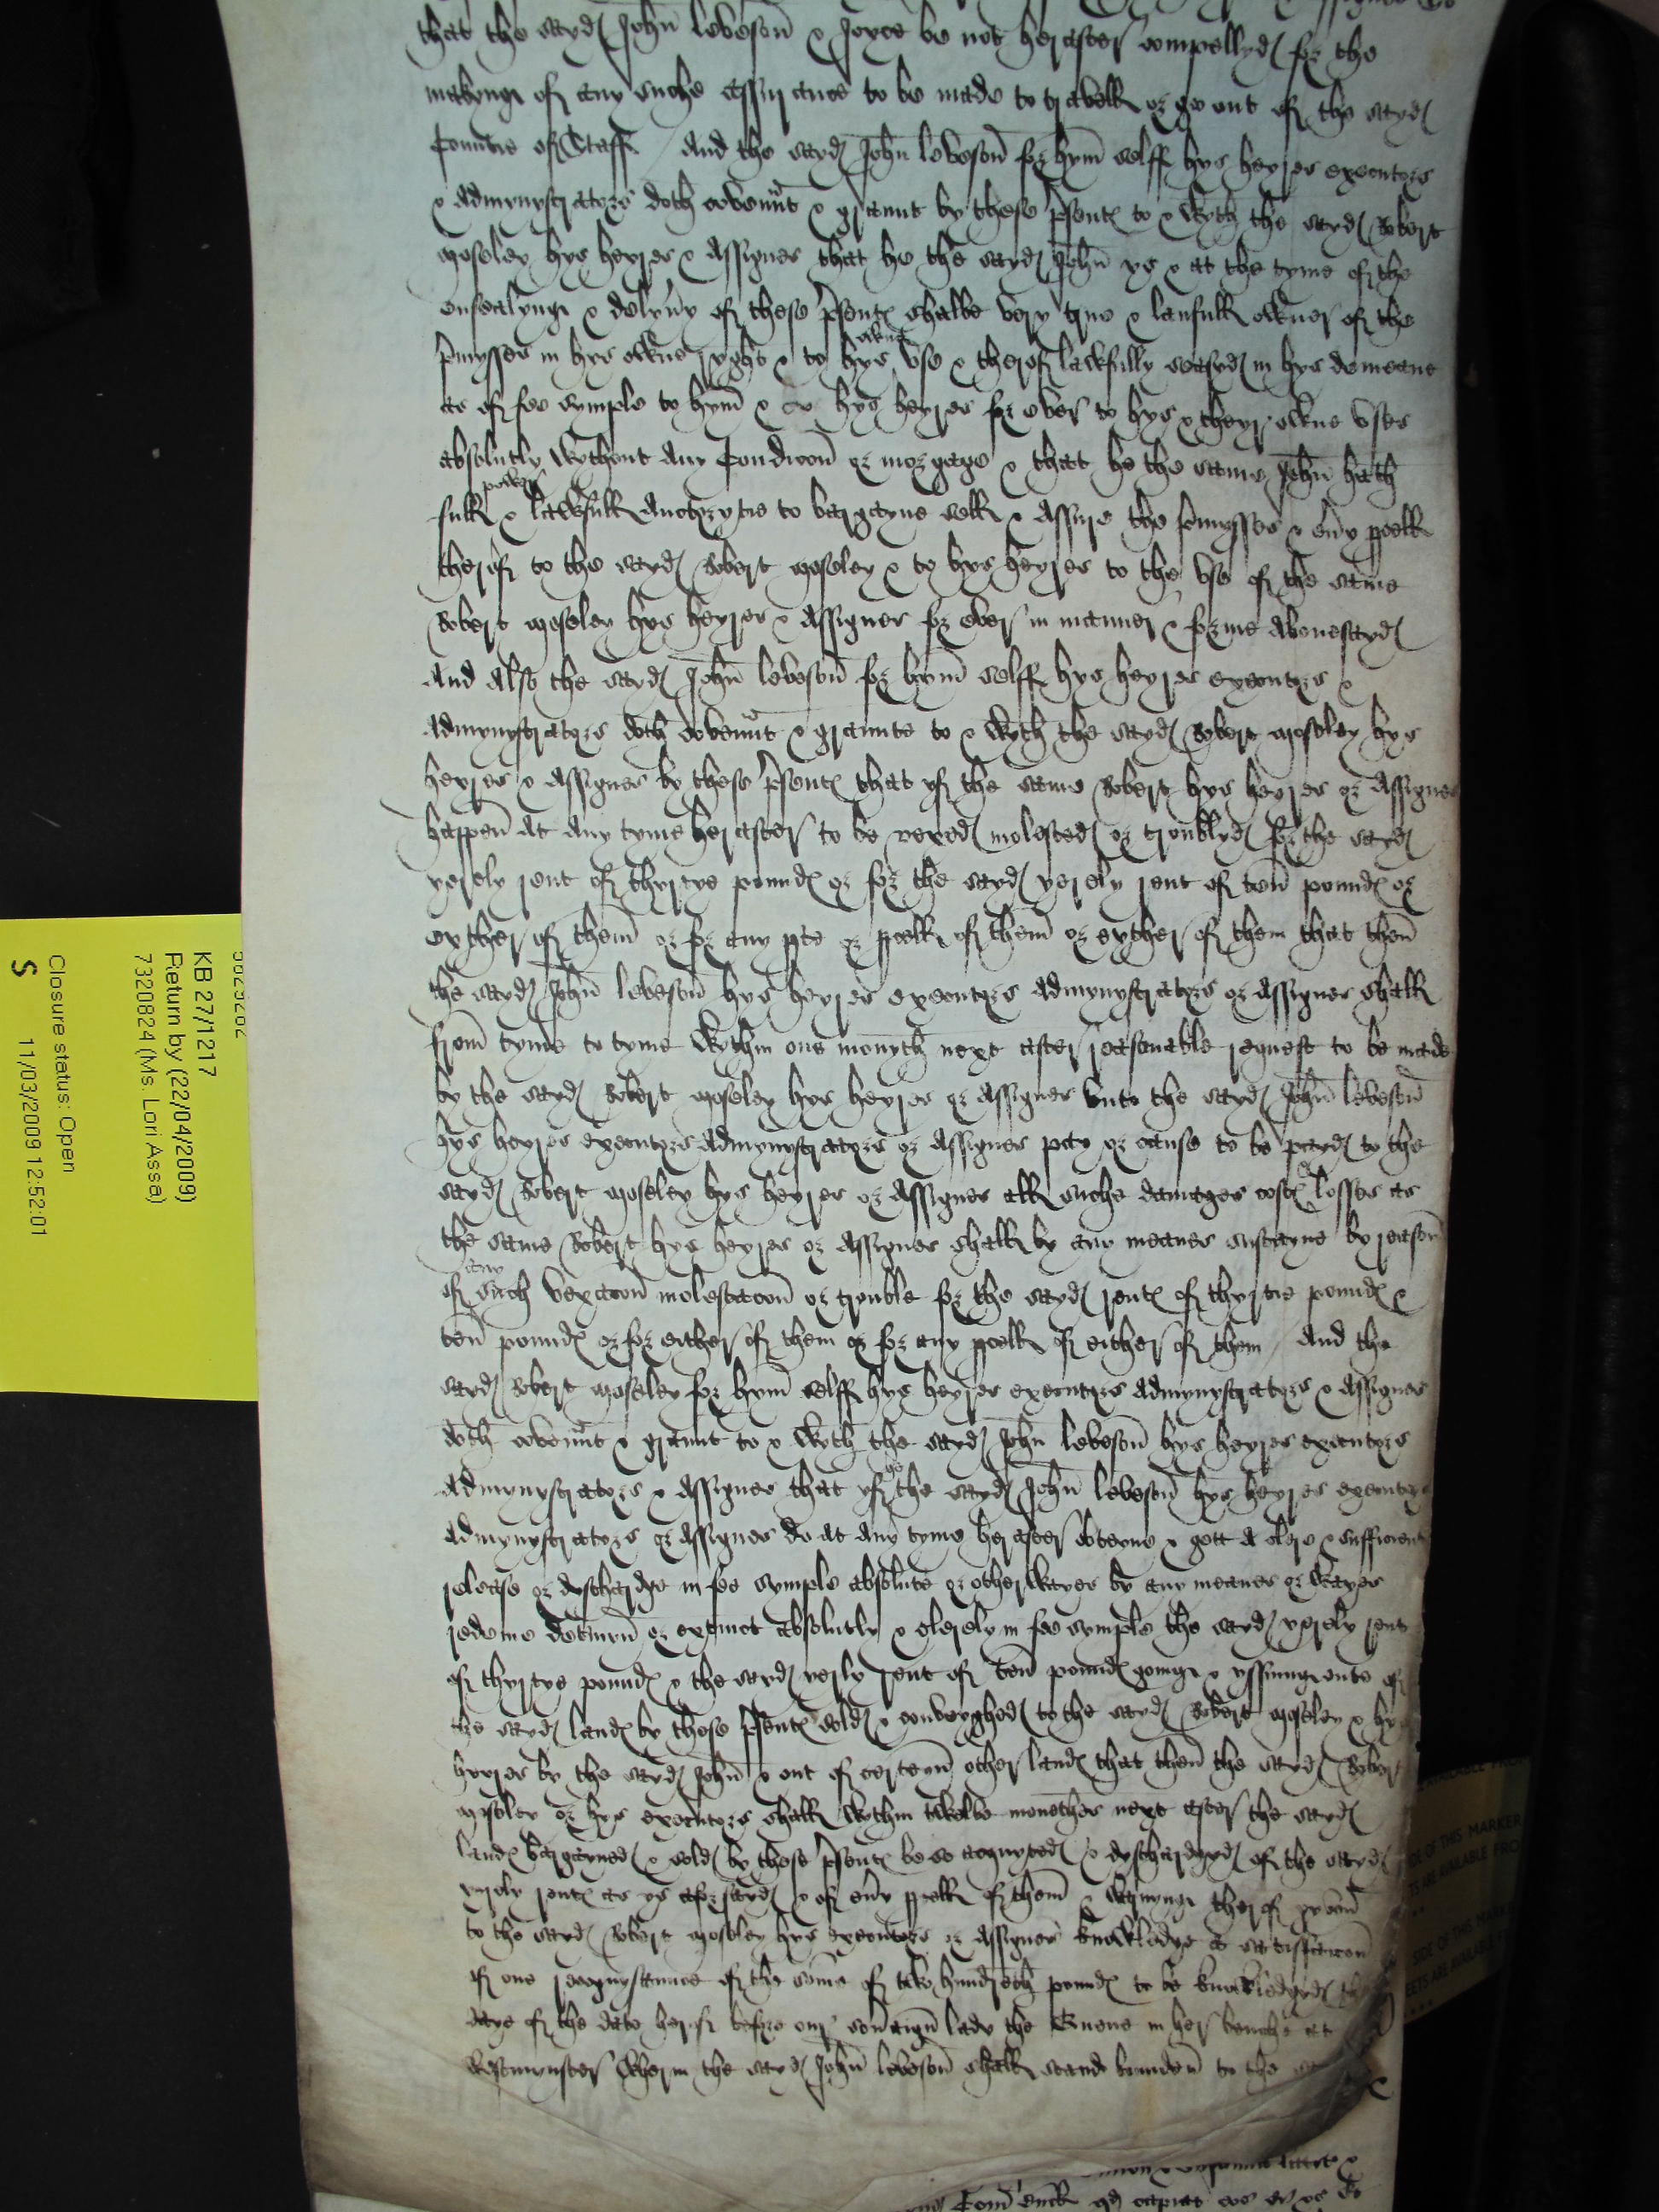 that the sayd John leveson & Joyce be not herafter compellyd for the
makynge of any suche assurance to be made to travell or go out of the sayd
Countie of Staff And the sayd John leveson for hym selff hys heyres executors
& Admynystrators doth covennt & graunt by these psente to & wyth the sayd Robert
moseley hys heyres & Assignes that he the sayd John ys & at the tyme of the
ensealynge & delyvy of these psente shalbe very true & laufull owner of the
pmysses in hys owne ryght & to hys owne use & therof lawfully seasyd in hys demeane
as of fee symple to hym & hys heyres for ever to hys & theyr owne uses
absolutly wythout Any Condicon or morgage & that he the same John hath
full power & lawfull Auctorytie to bargayne sell & Assure the pmysses & evy pcell
therof to the sayd Robert moseley & to hys heyres to the use of the same
Robert moseley hys heyres & Assignes for ever in manner & forme abovesayd
And Also the sayd John leveson for hym selff hys heyres executors &
Admynystrators doth covennt & graunte to & wyth the sayd Robert moseley hys
heyres & Assignes by these psente that yf the same Robert hys heyres or Assignes
happen At Any tyme herafter to be vexed molested or troublyd for the sayd
yerely rent of thyrtye pounde or for the sayd yerely rent of ten pounde or
eyther of them or for any pte or pcell of them or eyther of them that then
the sayd John leveson hys heyres executors Admynystrators or Assignes shall
from tyme to tyme wythin one monyth next after reasonable request to be made
by the sayd Robert moseley hys heyres or Assignes unto the sayd John leveson
hys heyres executors Admynystrators or Assignes pay or cause to be payd to the
sayd Robert moseley hys heyres or Assignes all suche damages coste & losses as
the same Robert hys heyres or Assignes shall by any meanes susteyne by reason
of any such vexacon molestacon or trouble for the sayd rente of thyrtie pounde &
ten pounde or for either of them or for any pcell of either of them And the
sayd Robert moseley for hym selff hys heyres executors Admynystrators & Assignes
doth covennt & graunt to & wyth the sayd John leveson hys heyres executors
Admynystrators & Assignes that yf the sayd John leveson hys heyres executors
Admynystrators or Assignes do At Any tyme herafter obteyne & gett A clere & sufficient
release or dyschardge in fee symple absolute or otherwayes by any meanes or wayes
redeme detmyn or extinct absolutly & clerely in fee symple the sayd yerely rent
of thyrtye pounde & the sayd yerly rent of ten pounde goinge & yssuinge oute of
the sayd lande by these psente sold & conveyghed to the sayd Robert moseley & hys
heyres by the sayd John & out of certeyn other lande that then the sayd Robert
moseley or hys executors shall wythin twelve monethes next after the sayd
lande bargayned & sold by these psente be so acquyted & dyschardgyd of the sayd
yerely rente as ys aforsayd & of evy pcell of them & warnynge therof gyven
to the sayd Robert moseley hys executors or Assignes knowledge a satisfaccon
of one recognysaunce of the some of two hundreth pounde to be knowledgyd the
daye of the date herof before our sovaign lady the Quene in her benche at
Westmynster wherin the sayd John leveson shall stand bounden to the
KB 27/1217
Return by (22/04/2009)
7320824 (Ms. Lori Asse)
Closure status: Open
S 11/03/2009 12:52:01